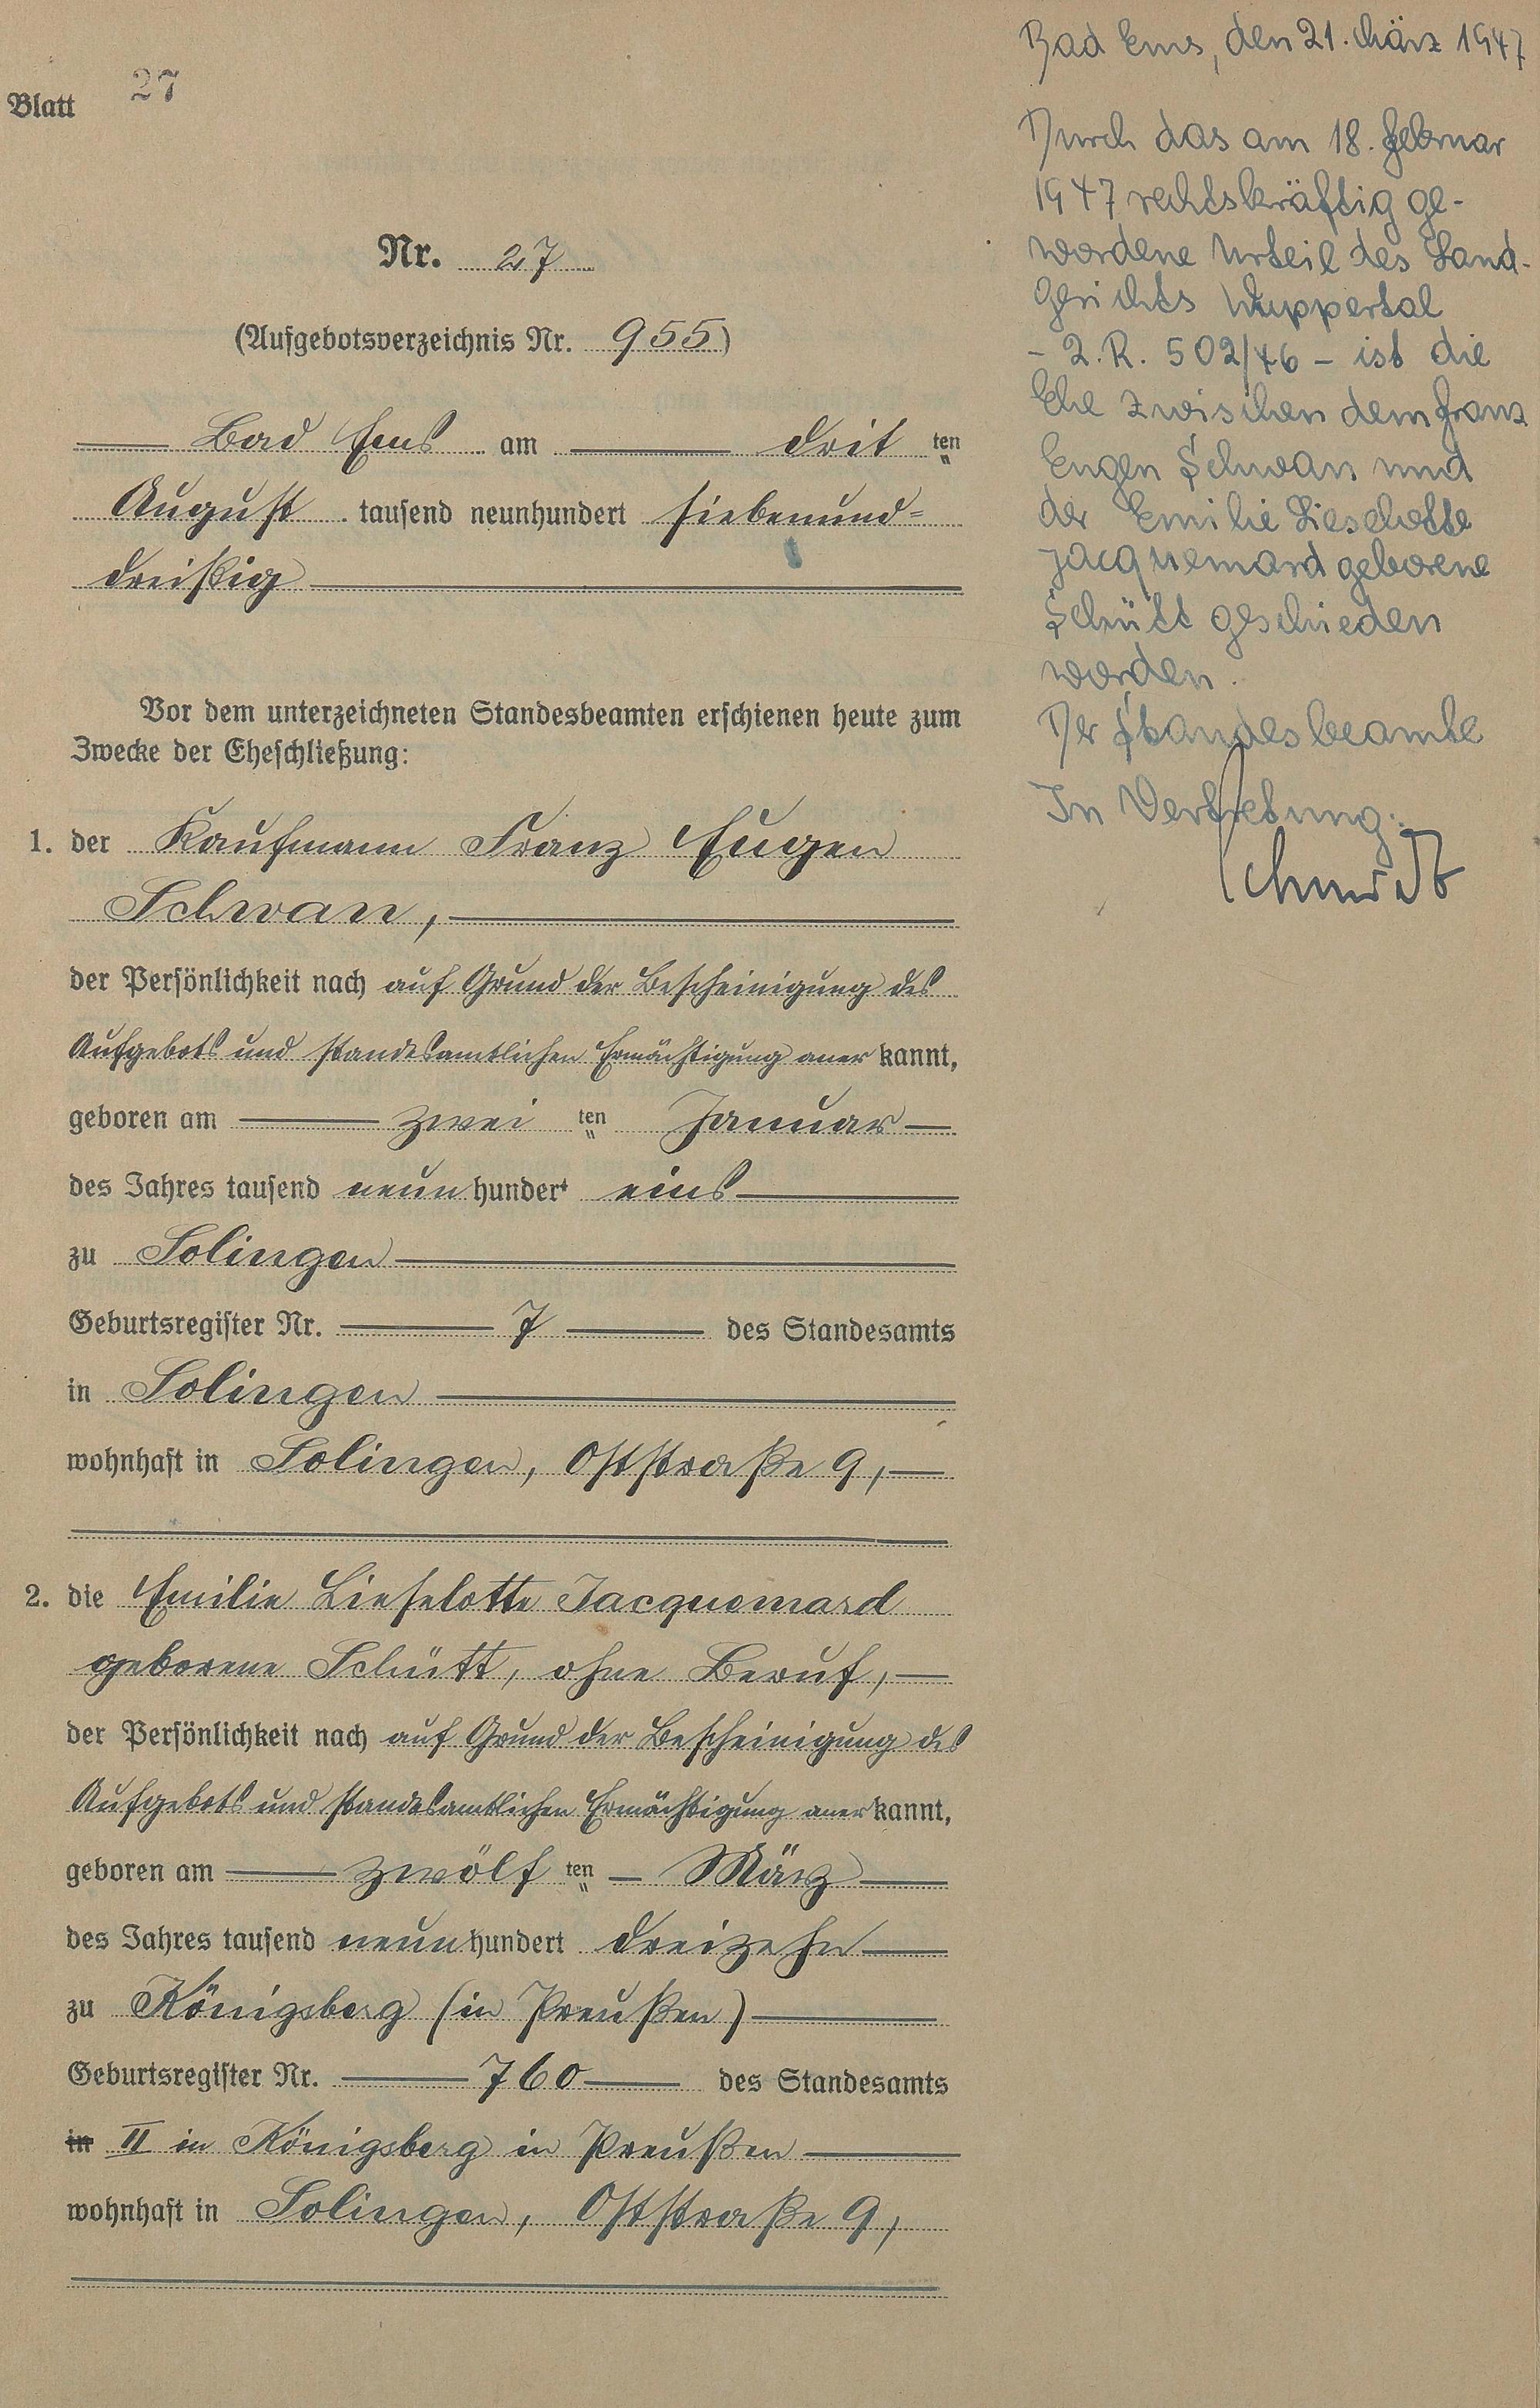 Blatt 27
Nr. 27
(Aufgebotsverzeichnis Nr. 955)
Bad Ems am drit ten
August tausend neunhundert siebenund=
dreißig
Vor dem unterzeichneten Standesbeamten erschienen heute zum
Zwecke der Eheschließung:
1. der Kaufmann Franz Eugen
Schwan,
der Persönlichkeit nach auf Grund der Bescheinigung des
Aufgebots und standesamtlichen Ermächtigung aner kannt,
geboren am zwei ten Januar
des Jahres tausend neun hundert eins
zu Solingen
Geburtsregister Nr. 7 des Standesamts
in Solingen
wohnhaft in Solingen, Oststraße 9,
2. die Emilie Lieselotte Jacquemard
geborene Schütt, ohne Beruf,
der Persönlichkeit nach auf Grund der Bescheinigung des
Aufgebots und standesamtlichen Ermächtigung aner kannt,
geboren am zwölf ten März
des Jahres tausend neun hundert dreizehn
zu Königsberg (in Preußen)
Geburtsregister Nr. 760 des Standesamts
in II in Königsberg in Preußen
wohnhaft in Solingen, Oststraße 9,
Bad Ems, den 21. März 1947
Durch das am 18. Februar
1947 rechtskräftig ge-
wordene Urteil des Land-
gerichts Wuppertal
- 2. R. 502/46 - ist die
Ehe zwischen dem Franz
Eugen Schwan und
der Emilie Lieselotte
Jacquemard geborene
Schütt geschieden
worden.
Der Standesbeamte
In Vertretung:
Schmidt